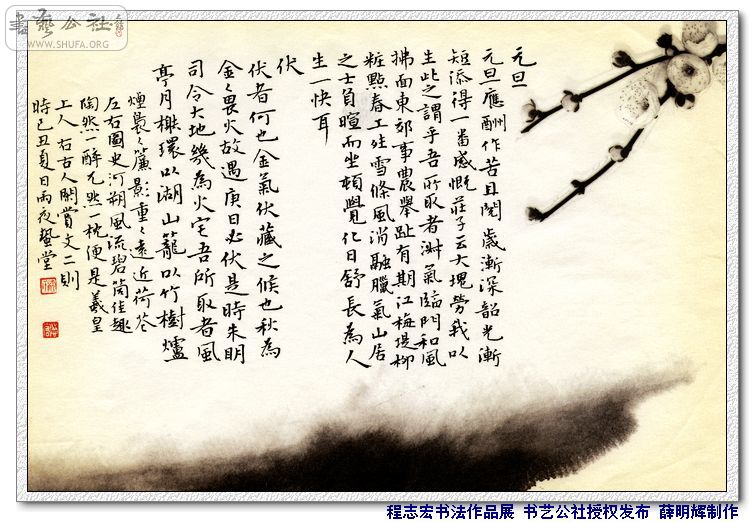 書藝公社
WWW.SHUFA.ORG
元旦
元旦應酬作苦且閱歲漸深韶光漸
短添得一番感慨莊子云大塊勞我以
生此之謂乎吾所取者淑氣臨門和風
拂面東郊事農舉趾有期江梅堤柳
粧點春工殘雪條風消融臘氣山居
之士負暄而坐頓覺化日舒長為人
生一快耳
伏
伏者何也金氣伏藏之候也秋為
金々畏火故遇庚日必伏是時朱明
司令大地幾為火宅吾所取者風
亭月榭環以湖山籠以竹樹爐
煙裊々簾影重々遠近荷花
左右圖史河朔風流碧筒佳趣
陶然一醉兀然一枕便是羲皇
上人 右古人閑賞文二則
時己丑夏日雨夜蟄堂
程志宏书法作品展 书艺公社授权发布 薛明辉制作